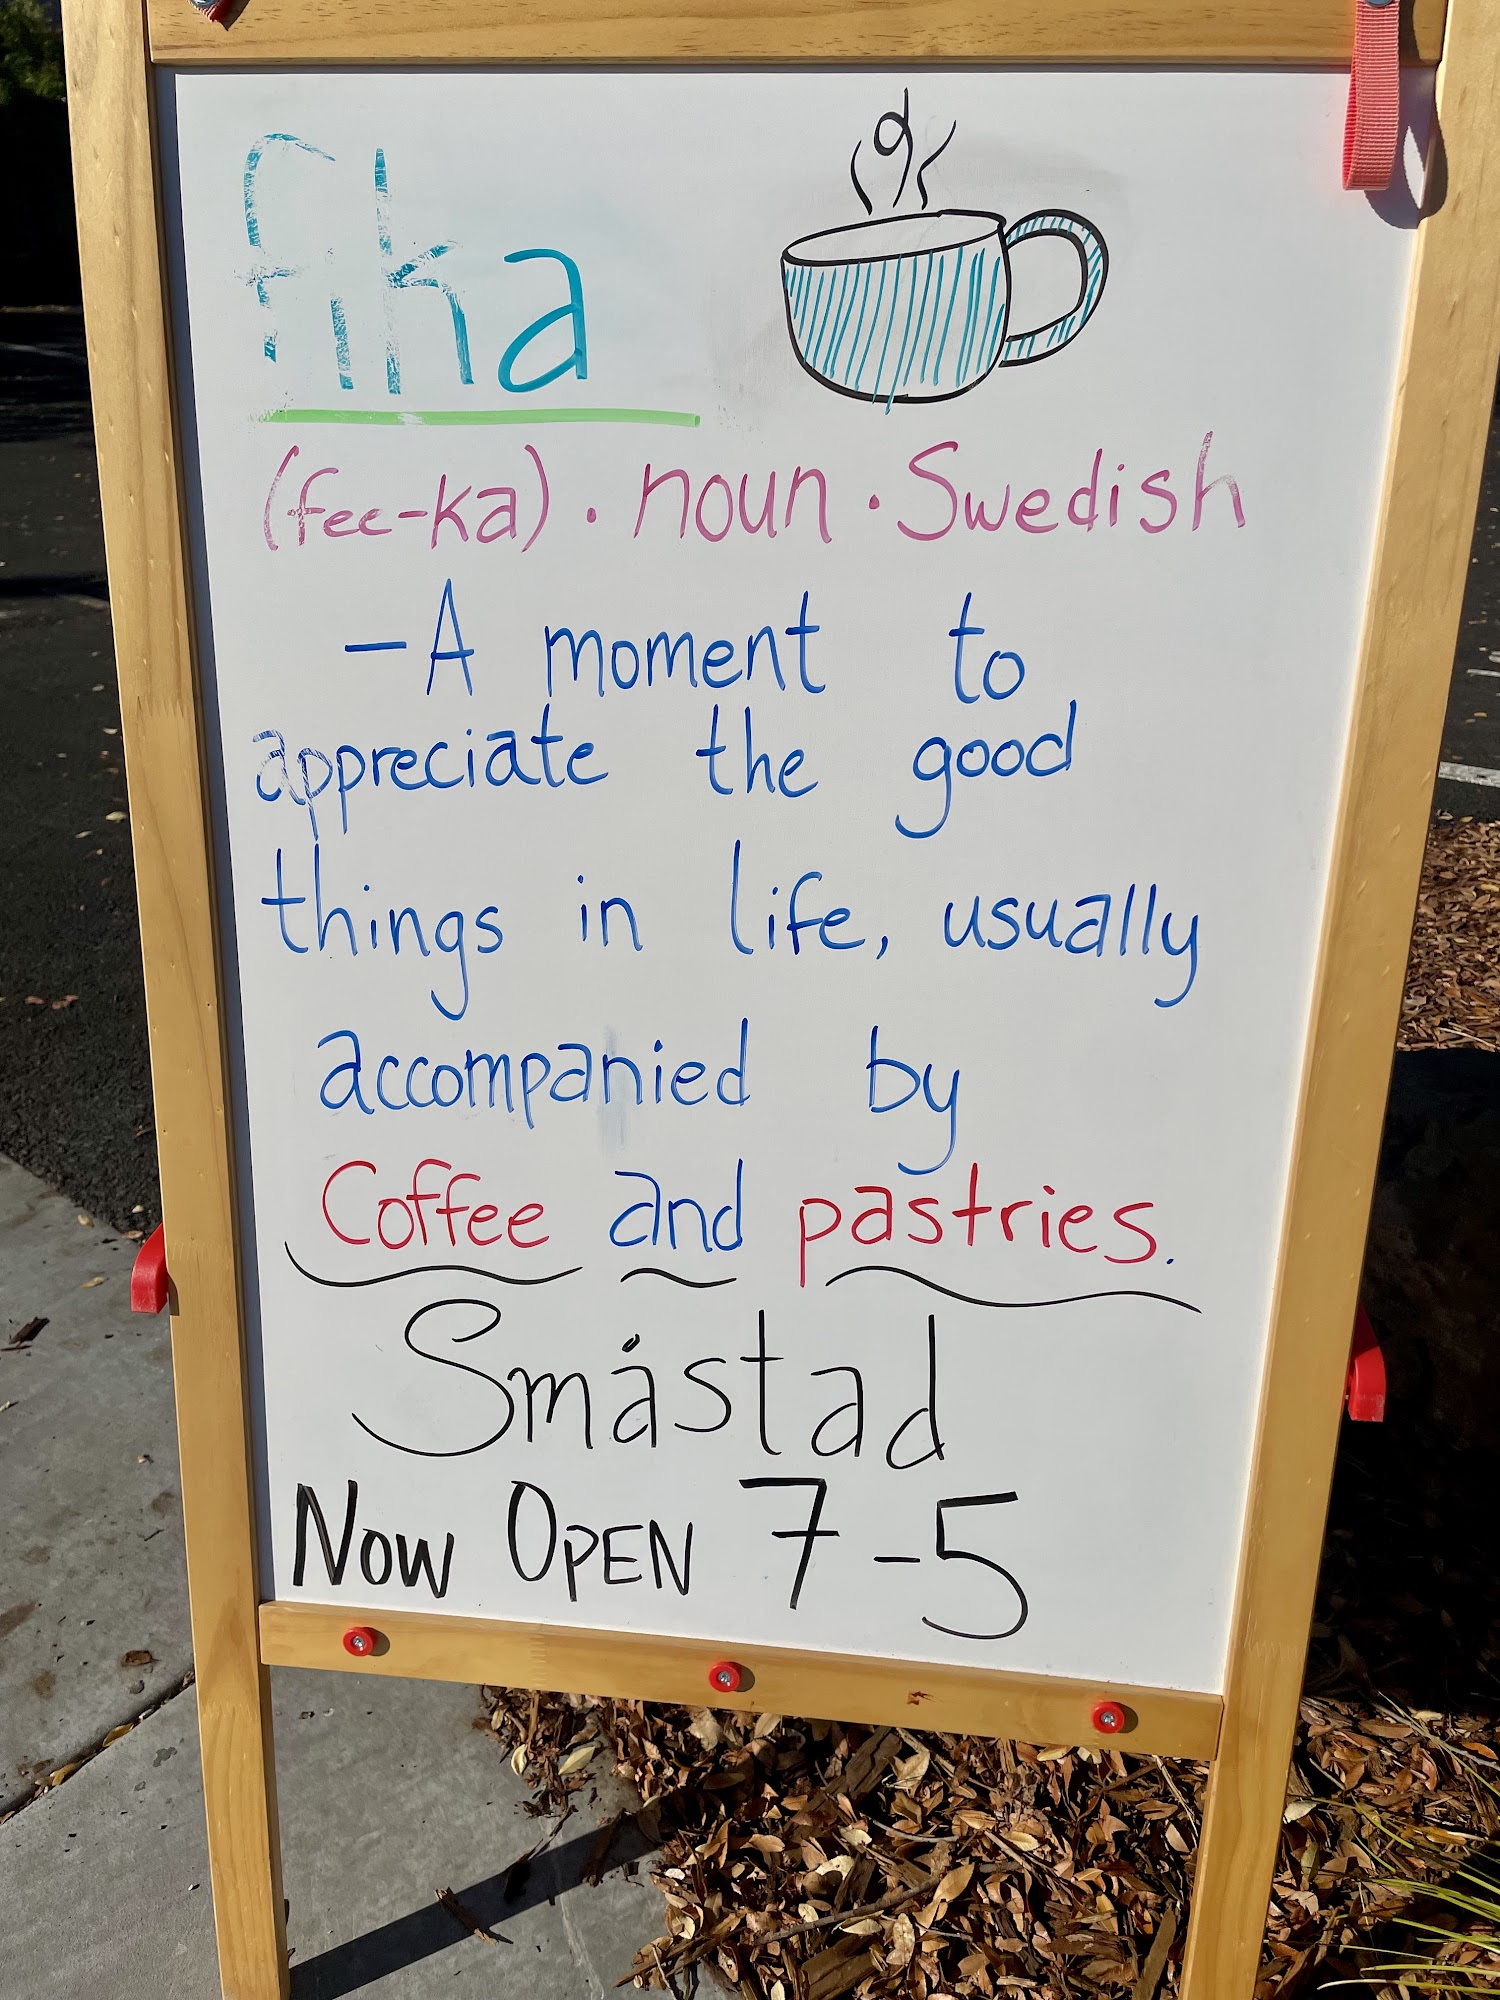 fika
(fee-ka) · noun · Swedish
– A moment to
appreciate the good
things in life, usually
accompanied by
Coffee and pastries.
Småstad
NOW OPEN 7-5